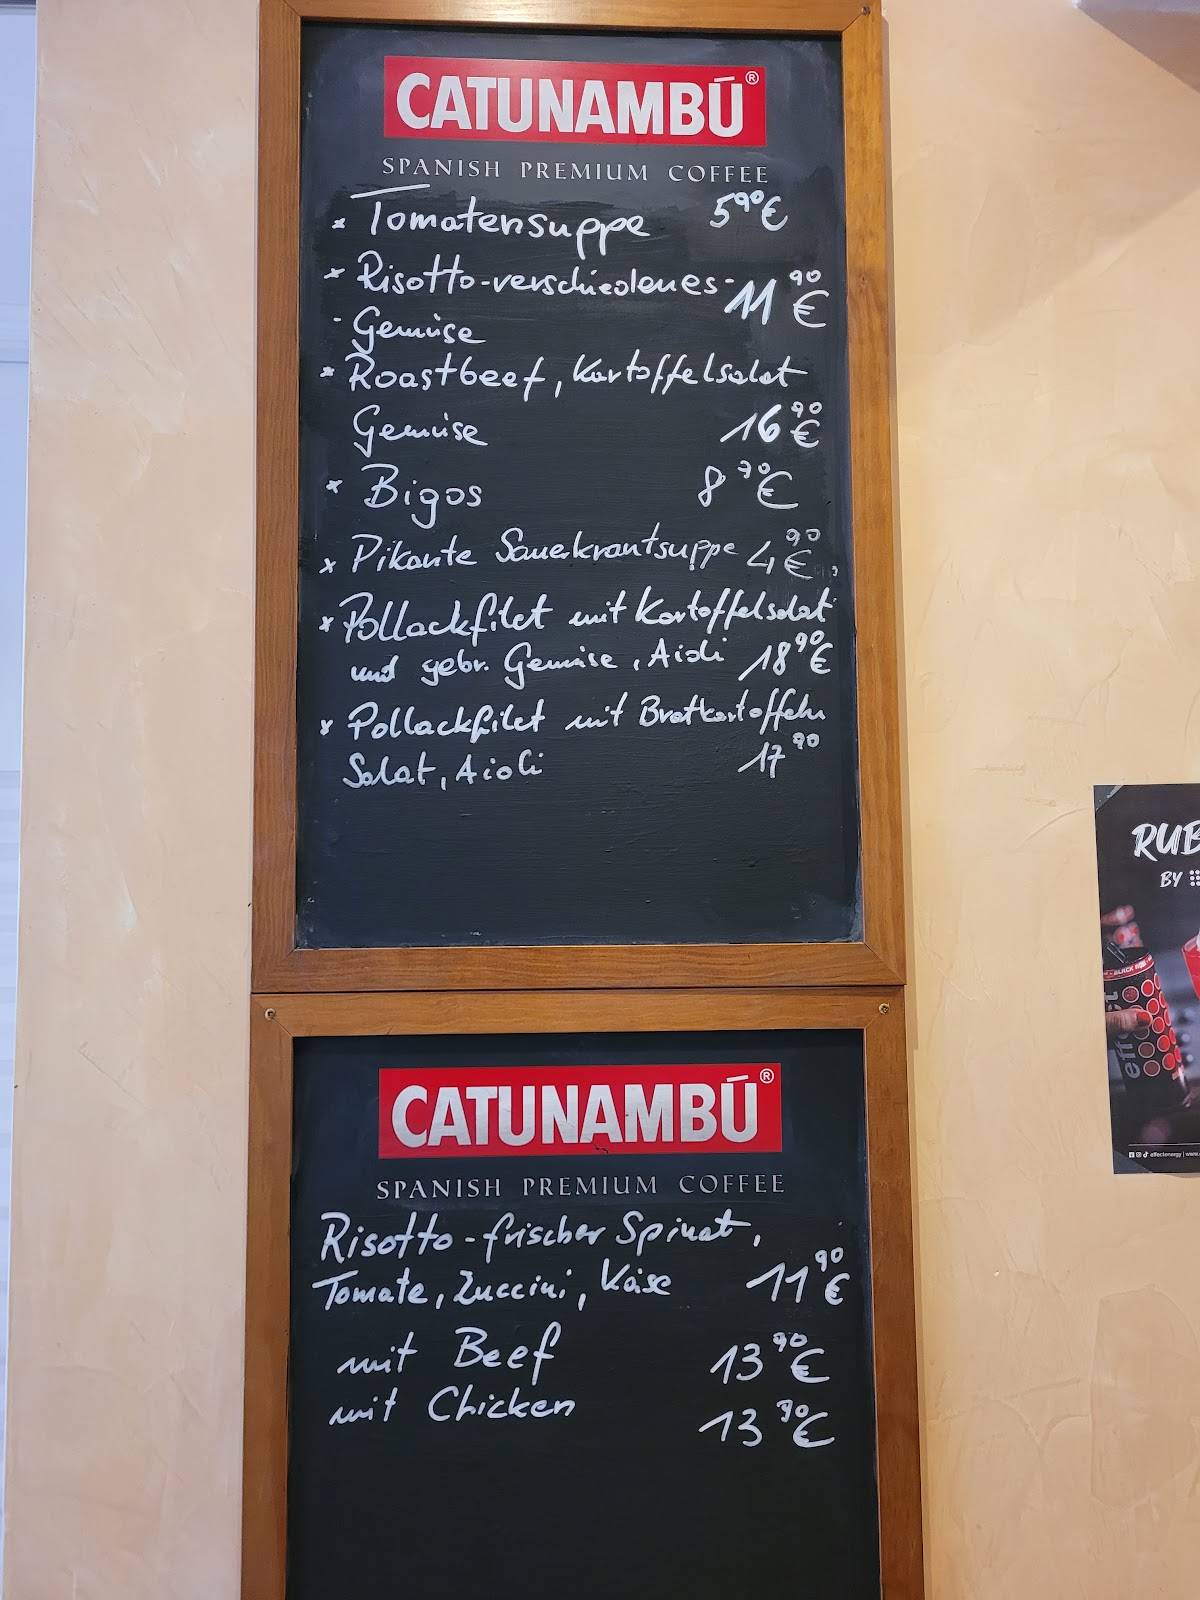 CATUNAMBÚ®
SPANISH PREMIUM COFFEE
* Tomatensuppe 5,90 €
* Risotto-verschiedenes- 11 90 €
- Gemüse
* Roastbeef, Kartoffelsalat
Gemüse 16 90 €
* Bigos 8 90 €
* Pikante Sauerkrautsuppe 4 90 €
* Pollackfilet mit Kartoffelsalat
und gebr. Gemüse, Aioli 18 90 €
* Pollackfilet mit Bratkartoffeln
Salat, Aioli 17 90
CATUNAMBÚ®
SPANISH PREMIUM COFFEE
Risotto-frischer Spinat,
Tomate, Zuccini, Käse 11 90 €
mit Beef 13 90 €
mit Chicken 13 90 €
RUB
BY
BLACK
effect
effectenergy | www.